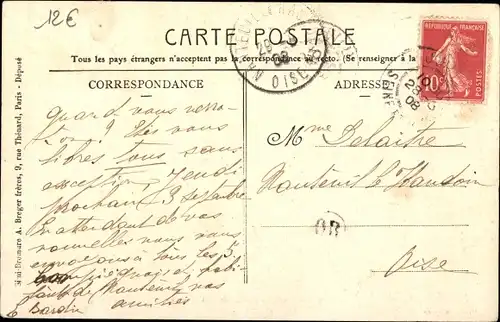 12€
CARTE POSTALE
Tous les pays étrangers n'acceptent pas la correspondance au recto. (Se renseigner à la
CORRESPONDANCE
ADRESSE
Quand vous verra-
t'on ? Etes vous
libres tous sans
exception, Jeudi
prochain 3 Septembre
En attendant de vos
nouvelles nous vous
envoyons à tous les 5
de Nanteuil nos
amitiés
Bardin
Mme Delaitre
Nanteuil le Haudoin
Oise
OR
RÉPUBLIQUE FRANÇAISE
10c
POSTES
OISE
28
08
Simili-Bromure A. Breger frères, 9, rue Thénard, Paris - Déposé